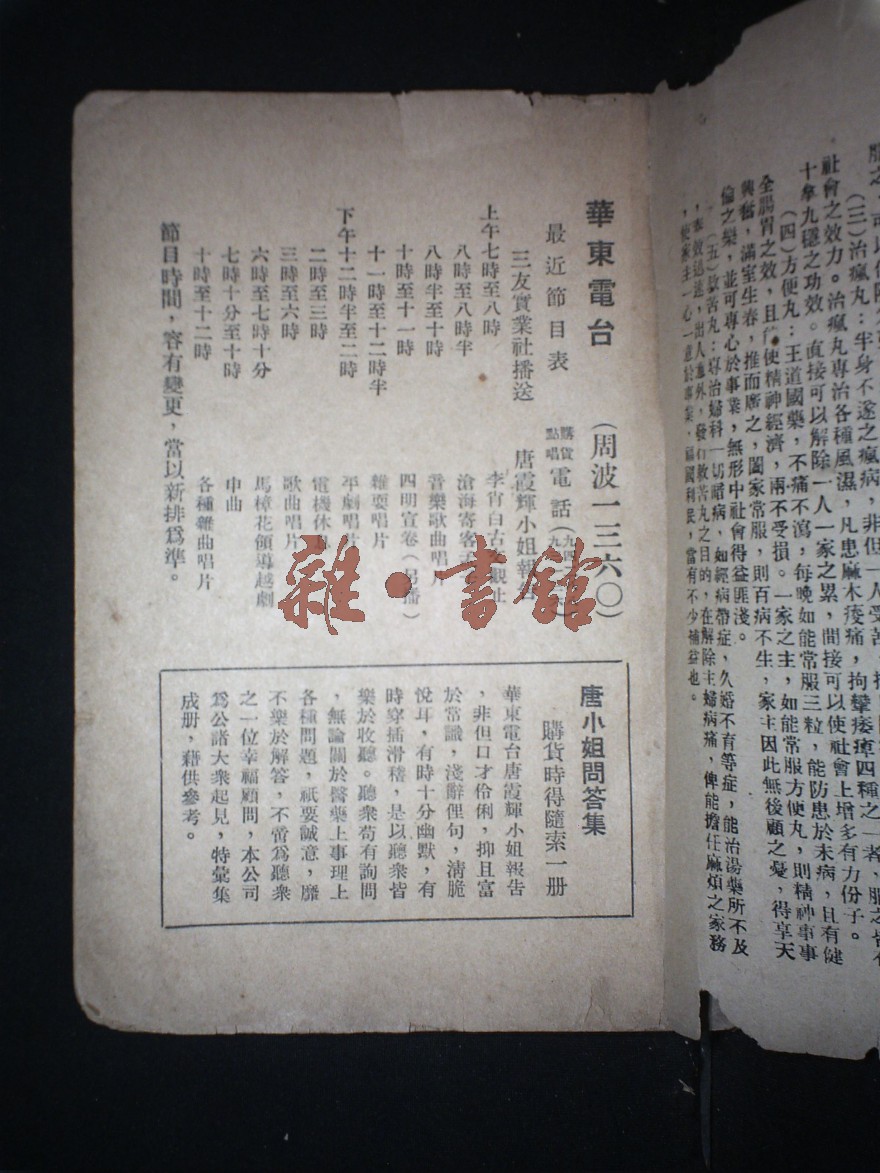 社會之效力。治瘋丸專治各種風濕，凡患麻木痠痛，拘攣痿痺四種之一者，服之皆
十拿九穩之功效。直接可以解除一人一家之累，間接可以使社會上增多有力份子。
（三）治瘋丸：半身不遂之瘋病，非但一人受苦
（四）方便丸：王道國藥，不痛不瀉，每晚如能常服三粒，能防患於未病，且有健
全腸胃之效，且使精神經濟，兩不受損。一家之主，如能常服方便丸，則精神事事
興奮，滿室生春，推而廣之，闔家常服，則百病不生，家主因此無後顧之憂，得享天
倫之樂，並可專心於事業，無形中社會得益匪淺。
（五）救苦丸：專治婦科一切暗病，如經病帶症，久婚不育等症，能治湯藥所不及
，奏效迅速，出人意外，發行救苦丸之目的，在解除主婦病痛，俾能擔任麻煩之家務
，使家主一心一意於事業，福國利民，當有不少補益也。
華東電台（周波一三六〇）
最近節目表 購貨點唱電話
三友實業社播送 唐霞輝小姐報告
上午七時至八時 李宵白古文觀止
八時至八時半 滄海寄客
八時半至十時 音樂歌曲唱片
十時至十一時 四明宣卷（另播）
十一時至十二時半 雜耍唱片
下午十二時半至二時 平劇唱片
二時至三時 電機休息
三時至六時 歌曲唱片
六時至七時十分 馬樟花領導越劇
七時十分至十時 申曲
十時至十二時 各種雜曲唱片
節目時間，容有變更，當以新排為準。
唐小姐問答集
購貨時得隨索一册
華東電台唐霞輝小姐報告
，非但口才伶俐，抑且富
於常識，淺辭俚句，清脆
悅耳，有時十分幽默，有
時穿插滑稽，是以聽衆皆
樂於收聽。聽衆苟有詢問
，無論關於醫藥上事理上
各種問題，祇要誠意，靡
不樂於解答，不啻爲聽衆
之一位幸福顧問，本公司
爲公諸大衆起見，特彙集
成册，藉供參考。
雜·書館